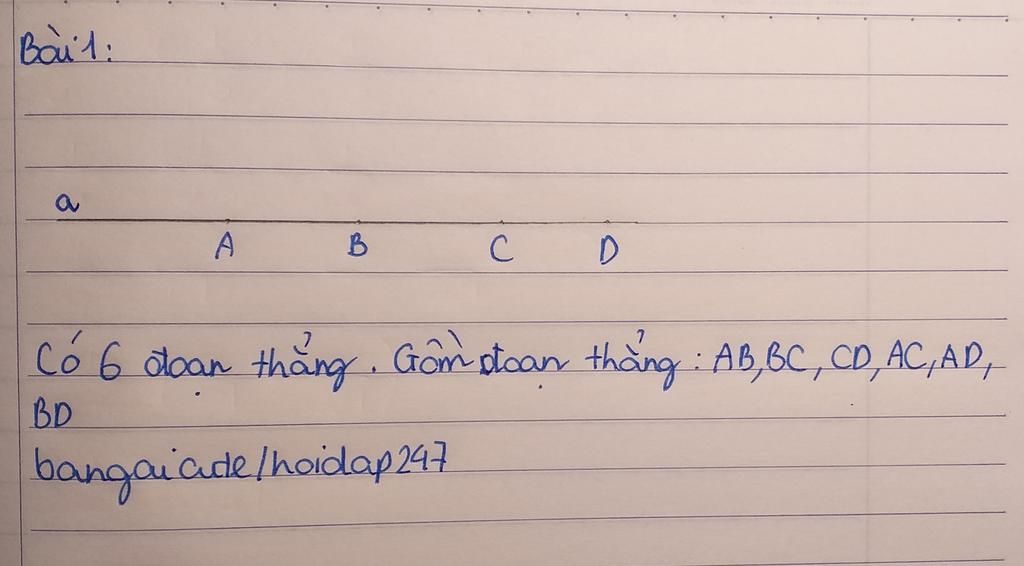 Bài 1:
a
A B C D
Có 6 đoạn thẳng. Gồm đoạn thẳng: AB, BC, CD, AC, AD,
BD
bangaicade/hoidap247